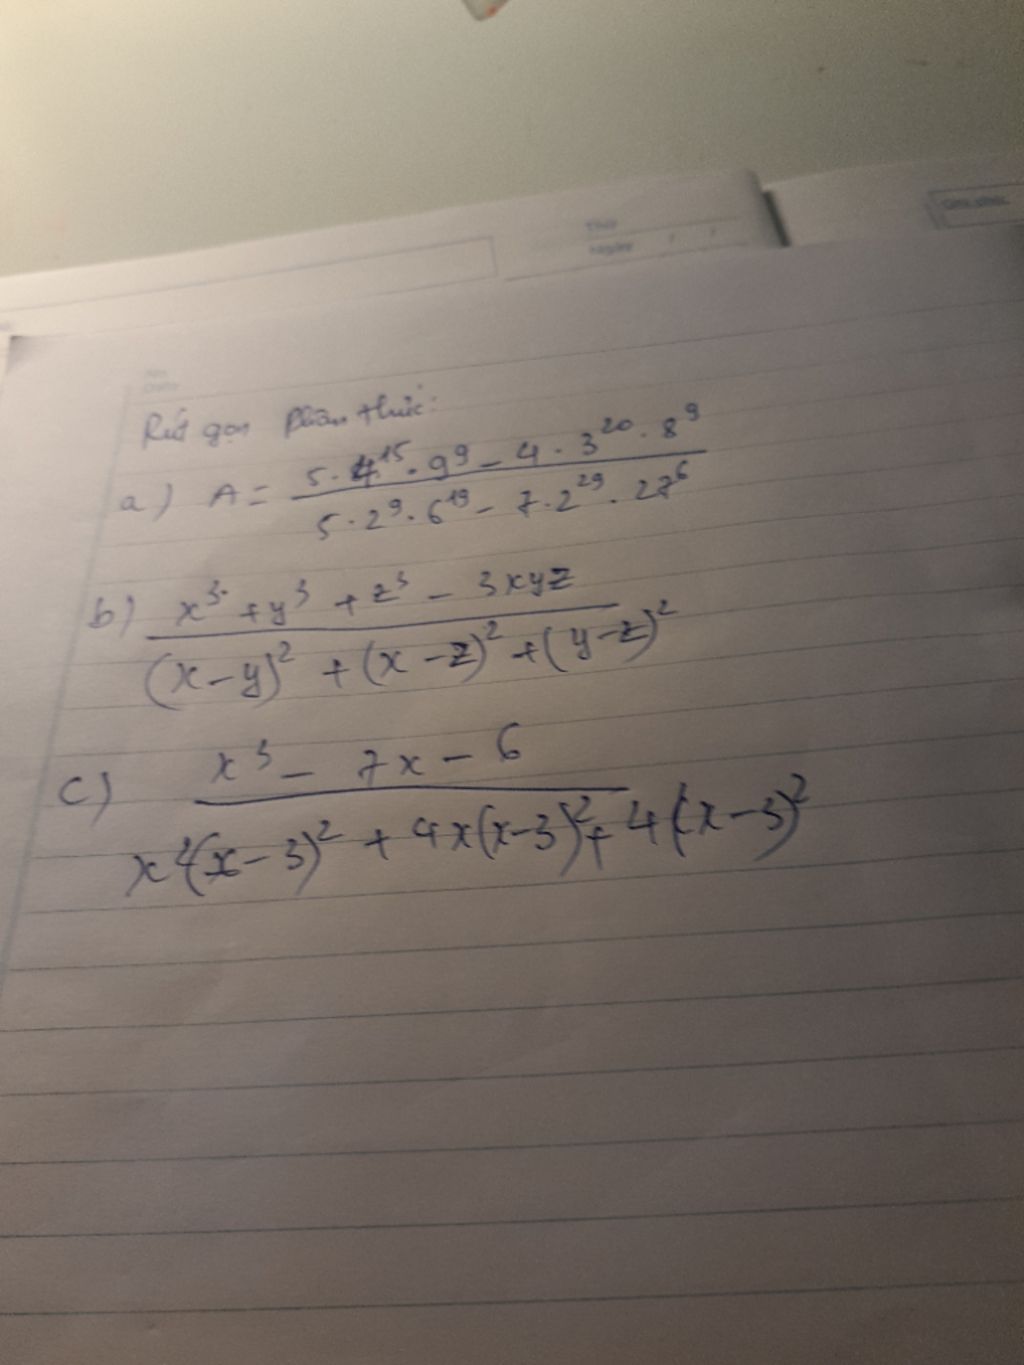 Thứ
Ngày / /
No.
Date
Rút gọn phân thức:
a) A = \frac{5 \cdot 4^{15} \cdot 9^9 - 4 \cdot 3^{20} \cdot 8^9}{5 \cdot 2^9 \cdot 6^{19} - 7 \cdot 2^{29} \cdot 27^6}
b) \frac{x^3 + y^3 + z^3 - 3xyz}{(x-y)^2 + (x-z)^2 + (y-z)^2}
c) \frac{x^3 - 7x - 6}{x^2(x-3)^2 + 4x(x-3)^2 + 4(x-3)^2}